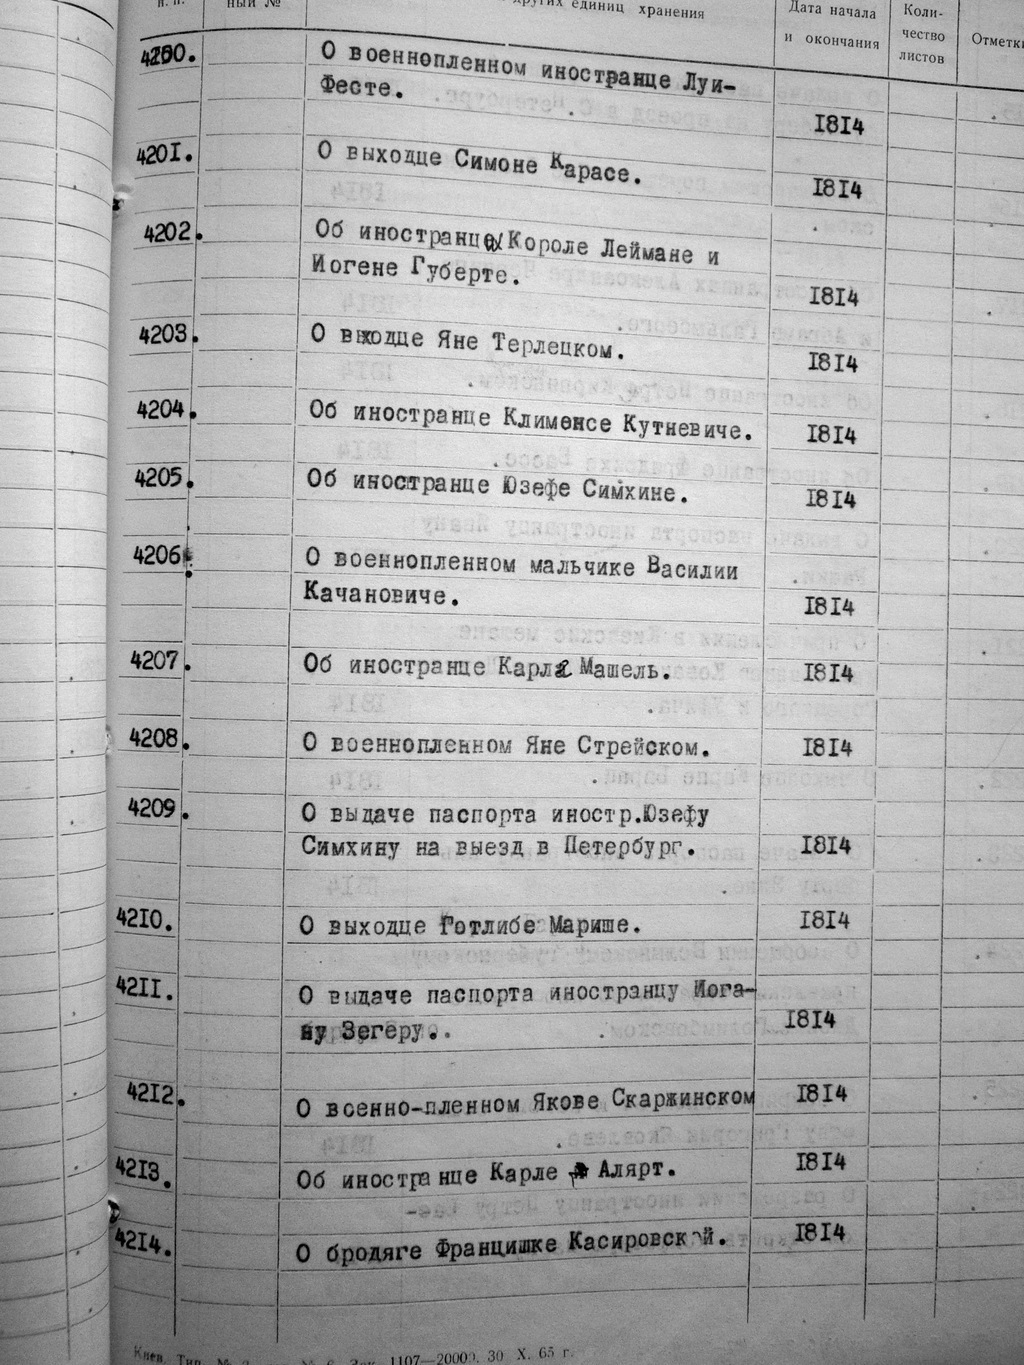 ный №
других единиц хранения
Дата начала
и окончания
Коли-
чество
листов
Отметки
4200. О военнопленном иностранце Луи-
Фесте. 1814
4201. О выходце Симоне Карасе. 1814
4202. Об иностранце Короле Леймане и
Иогене Губерте. 1814
4203. О выходце Яне Терлецком. 1814
4204. Об иностранце Клименсе Кутневиче. 1814
4205. Об иностранце Юзефе Симхине. 1814
4206. О военнопленном мальчике Василии
Качановиче. 1814
4207. Об иностранце Карле Машель. 1814
4208. О военнопленном Яне Стрейском. 1814
4209. О выдаче паспорта иностр.Юзефу
Симхину на выезд в Петербург. 1814
4210. О выходце Готлибе Марише. 1814
4211. О выдаче паспорта иностранцу Иога-
ну Зегеру. 1814
4212. О военно-пленном Якове Скаржинском 1814
4213. Об иностранце Карле Алярт. 1814
4214. О бродяге Францишке Касировской. 1814
Киев. Тип. 1107—20000. 30 X. 65 г.